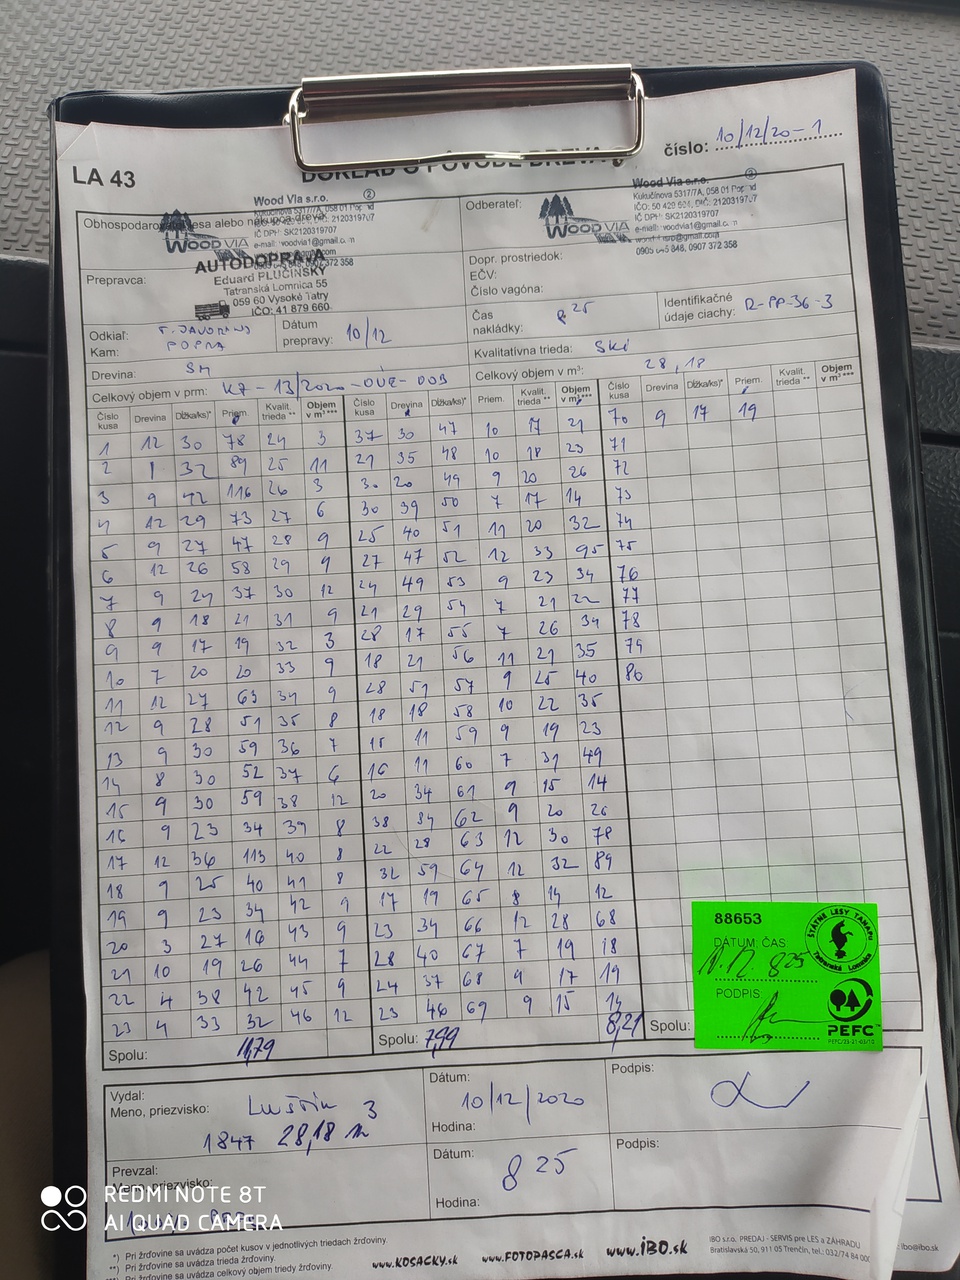 LA 43
DOKLAD O PÔVODE DREVA
číslo: 10/12/20-1
Obhospodarovateľ lesa alebo nákupca dreva:
WOOD VIA
Wood Via s.r.o.
Kukučínova 5317/7A, 058 01 Poprad
IČ DPH: SK2120319707
e-mail: woodvia1@gmail.com
Odberateľ:
WOOD VIA
Wood Via s.r.o.
Kukučínova 5317/7A, 058 01 Poprad
IČ DPH: SK2120319707
e-mail: woodvia1@gmail.com
Prepravca:
AUTODOPRAVA
Eduard PLUČINSKÝ
Tatranská Lomnica 55
059 60 Vysoké Tatry
IČO: 41 879 660
Dopr. prostriedok:
EČV:
Číslo vagóna:
Odkiaľ: T. JAVORINA
Kam: POPRAD
Dátum prepravy: 10/12
Čas nakládky: 8 25
Identifikačné údaje ciachy: R-PP-36-3
Drevina: SM
Kvalitatívna trieda: SKi
Celkový objem v prm: K7-13/2020-OUE-DOB
Celkový objem v m³: 28,18
Číslo kusa Drevina Dĺžka/ks)* Priem. Kvalit. trieda ** Objem v m³ *** Číslo kusa Drevina Dĺžka/ks)* Priem. Kvalit. trieda ** Objem v m³ *** Číslo kusa Drevina Dĺžka/ks)* Priem. Kvalit. trieda ** Objem v m³ ***
1 12 30 78 24 3 37 30 47 10 17 21 70 9 17 19
2 1 32 89 25 11 21 35 48 10 18 23 71
3 9 42 116 26 3 30 20 49 9 20 26 72
4 12 29 73 27 6 30 39 50 7 17 14 73
5 9 27 47 28 9 25 40 51 11 20 32 74
6 12 26 58 29 9 27 47 52 12 33 95 75
7 9 24 37 30 12 24 49 53 9 23 34 76
8 9 18 21 31 9 21 29 54 7 21 22 77
9 9 17 19 32 3 28 17 55 7 26 34 78
10 7 20 20 33 9 18 21 56 11 21 35 79
11 12 27 63 34 9 28 51 57 9 25 40 80
12 9 28 51 35 8 18 18 58 10 22 35
13 9 30 59 36 7 15 11 59 9 19 23
14 8 30 52 37 6 16 11 60 7 31 49
15 9 30 59 38 12 20 34 61 9 15 14
16 9 23 34 39 8 38 34 62 9 20 26
17 12 36 113 40 8 22 28 63 12 30 78
18 9 25 40 41 8 32 59 64 12 32 89
19 9 23 34 42 9 17 19 65 8 14 12
20 3 27 16 43 9 23 34 66 12 28 68
21 10 19 26 44 7 28 40 67 7 19 18
22 4 38 42 45 9 24 37 68 9 17 19
23 4 33 32 46 12 23 46 69 9 15 14
Spolu: 11,79
Spolu: 7,99
8,21
Spolu:
88653
DÁTUM, ČAS
825
PODPIS:
ŠTÁTNE LESY TANAPu
Tatranská Lomnica
PEFC
Vydal:
Meno, priezvisko: Luštík 3
1847 28,18 m
Dátum:
10/12/2020
Hodina:
Podpis:
Prevzal:
Meno, priezvisko:
Dátum:
8 25
Hodina:
Podpis:
REDMI NOTE 8T
AI QUAD CAMERA
*) Pri žrďovine sa uvádza počet kusov v jednotlivých triedach žrďoviny.
**) Pri žrďovine sa uvádza trieda žrďoviny.
***) Pri žrďovine sa uvádza celkový objem triedy žrďoviny.
www.KOSACKY.sk www.FOTOPASCA.sk www.iBO.sk
IBO s.r.o. PREDAJ - SERVIS pre LES a ZÁHRADU
Bratislavská 50, 911 05 Trenčín, tel.: 032/74 84 000